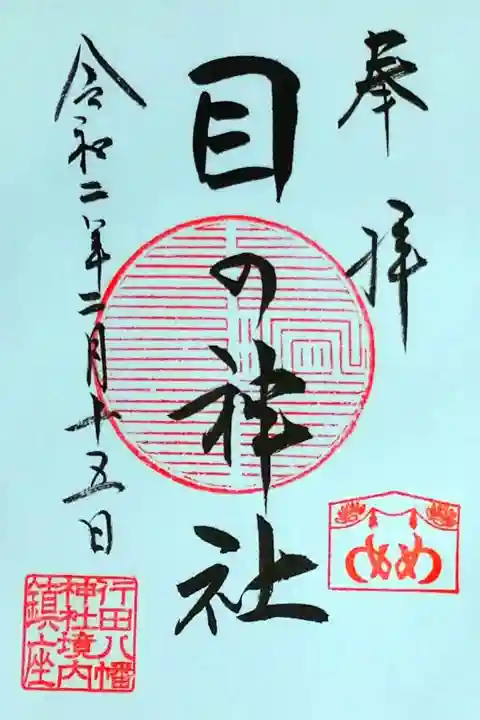 奉拝
目の神社
令和二年二月十五日
めめ
行田八幡
神社境内
鎮座